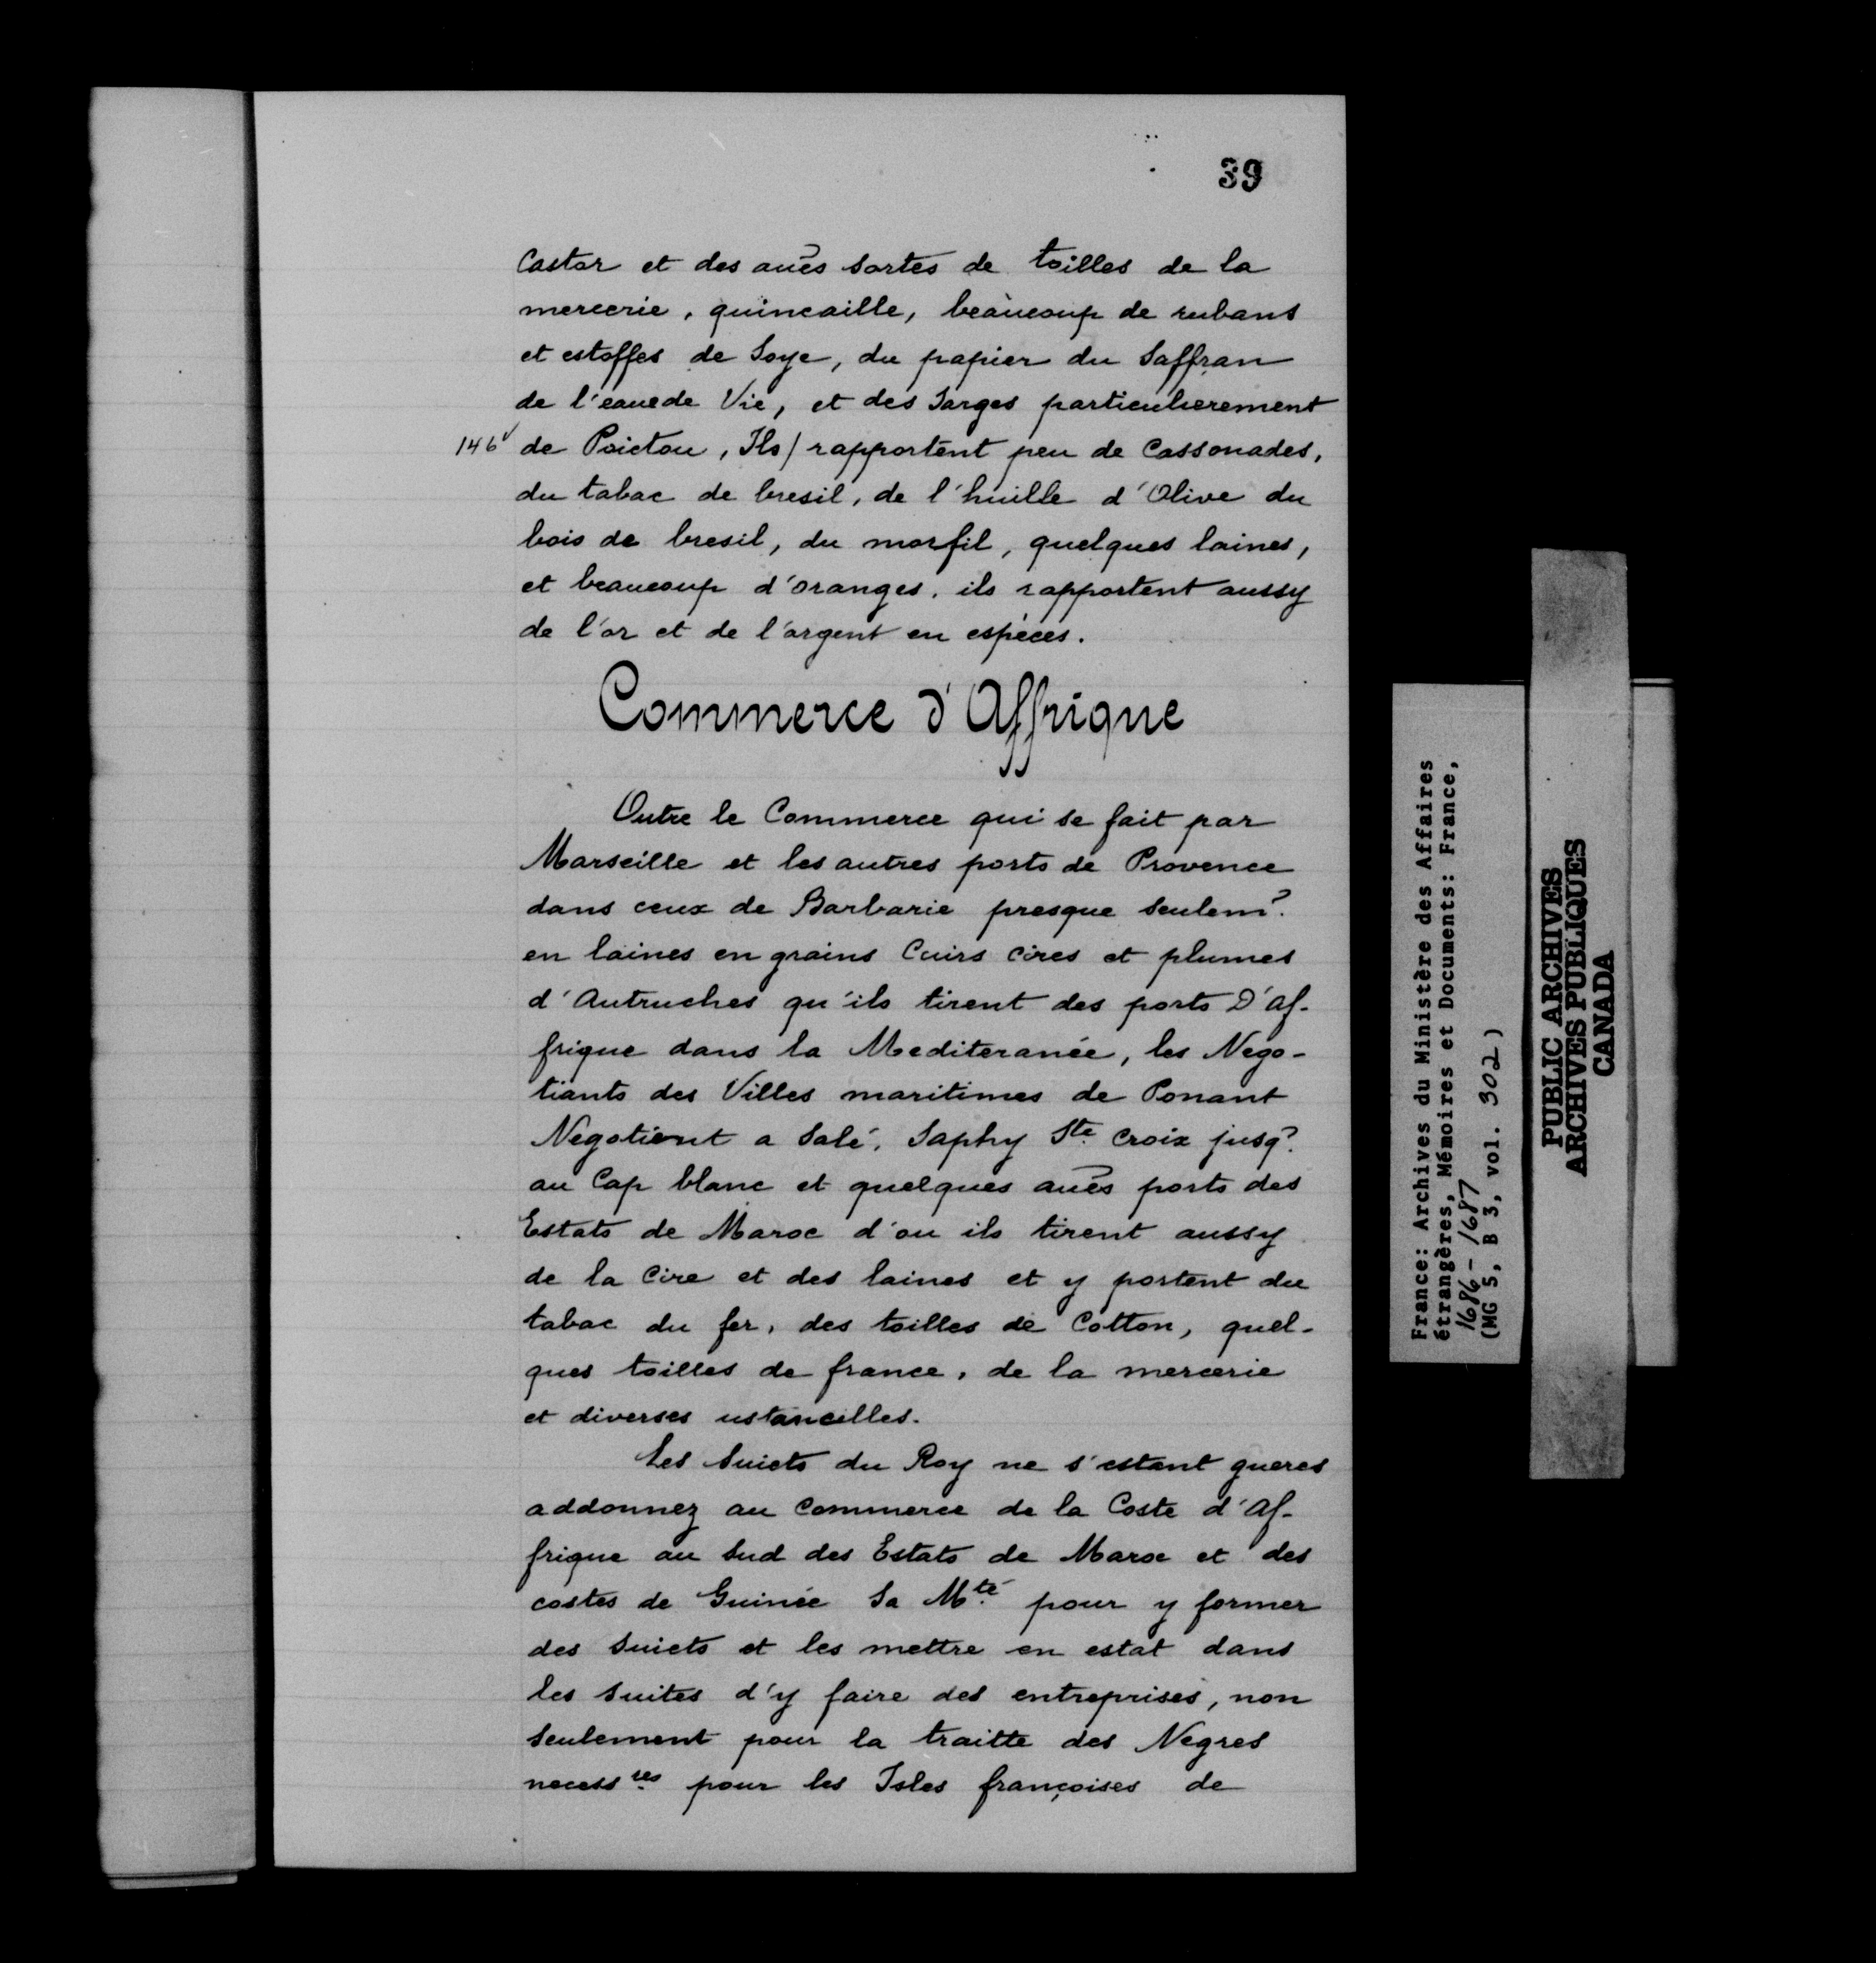 39
Castor et des aũes sortes de toilles de la
mercerie, quincaille, beaucoup de rubans
et estoffes de Soye, du papier du Saffran
de l'eauede Vie, et des Sarges particulierement
146v de Poictou, Ils/rapportent peu de Cassonades,
du tabac de bresil, de l'huille d'Olive du
bois de bresil, du morfil, quelques laines,
et beaucoup d'oranges. ils rapportent aussy
de l'or et de l'argent en espèces.
Commerce d'Affrique
Outre le Commerce qui se fait par
Marseille et les autres ports de Provence
dans ceux de Barbarie presque seulemt.
en laines en grains Cuirs cires et plumes
d'Autruches qu'ils tirent des ports D'Af-
frique dans la Mediteranée, les Nego-
tiants des Villes maritimes de Ponant
Negotient a Salé, Saphy Ste Croix jusq?
au Cap blanc et quelques aũes ports des
Estats de Maroc d'ou ils tirent aussy
de la Cire et des laines et y portent du
tabac du fer, des toilles de Cotton, quel-
ques toilles de france, de la mercerie
et diverses ustancilles.
Les Suiets du Roy ne s'estant gueres
addonnez au Commerce de la Coste d'Af-
frique au Sud des Estats de Maroc et des
costes de Guinée Sa Mté pour y former
des Suiets et les mettre en estat dans
les suites d'y faire des entreprises, non
seulement pour la traitte des Negres
necessres pour les Isles françoises de
France: Archives du Ministère des Affaires
étrangères, Mémoires et Documents: France,
1686-1687
(MG 5, B 3, vol. 302)
PUBLIC ARCHIVES
ARCHIVES PUBLIQUES
CANADA